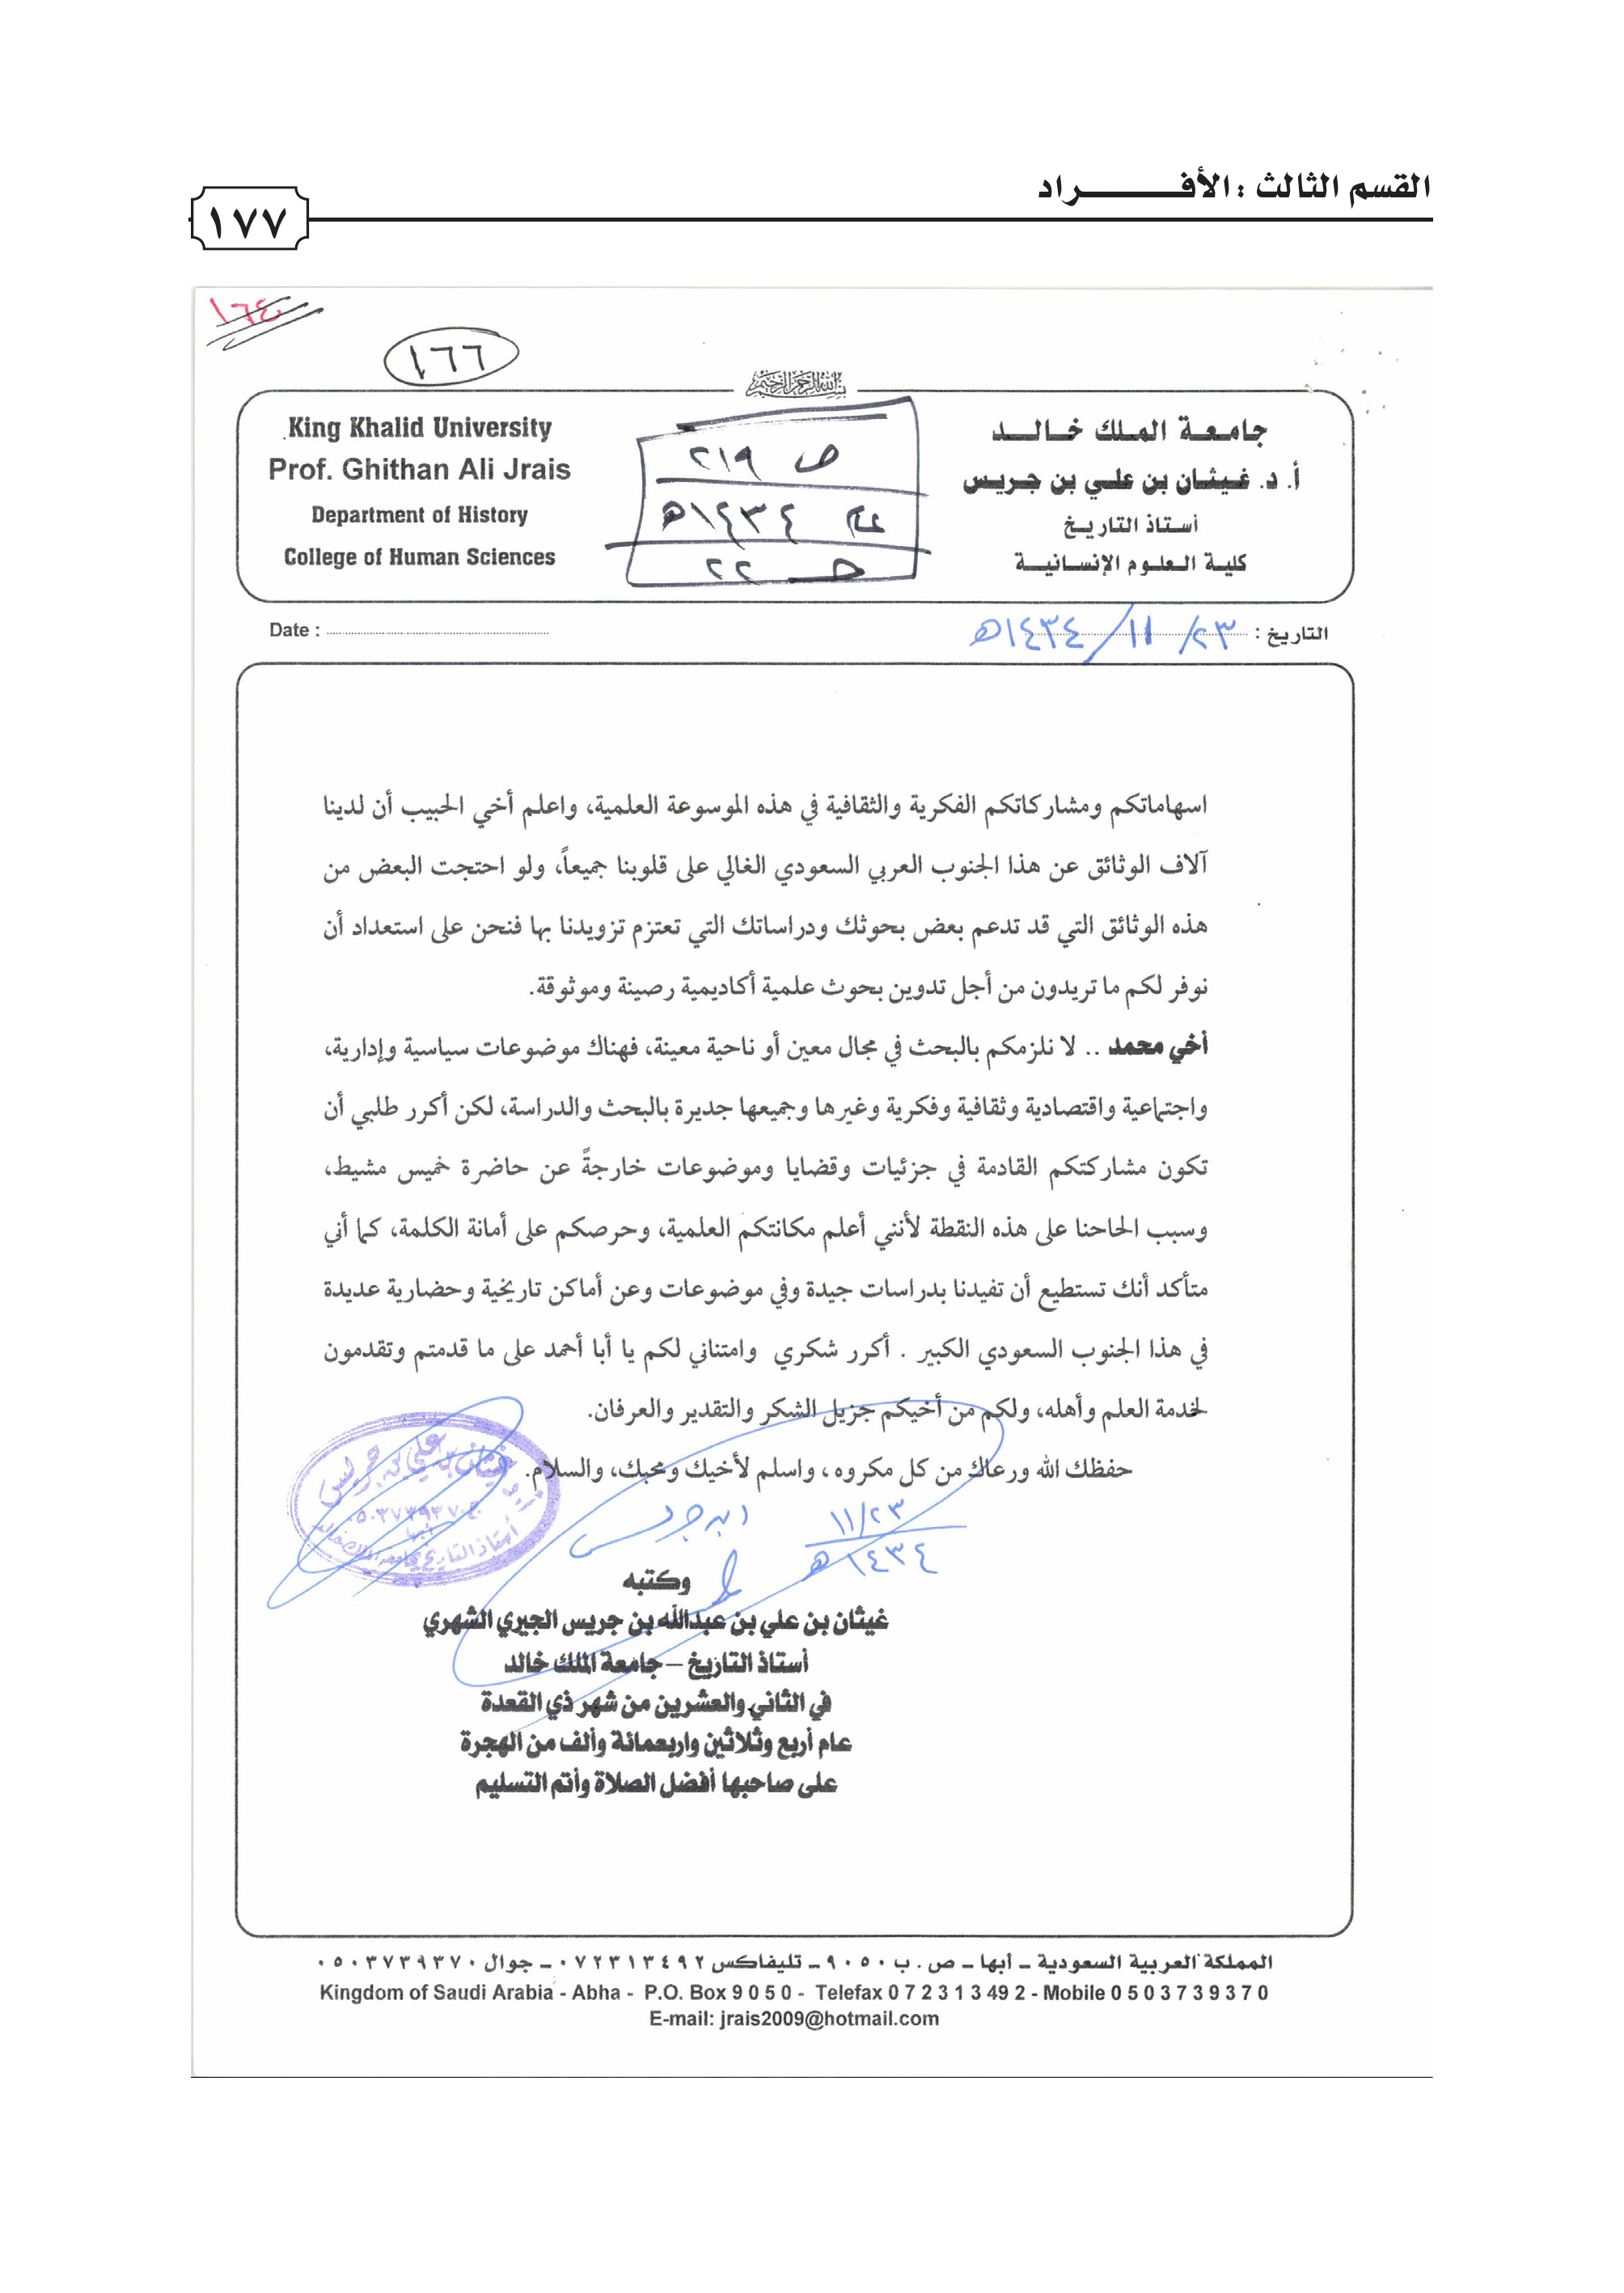 القسم الثالث : الأفـــــــراد
١٧٧
١٦٤
١٦٦
بسم الله الرحمن الرحيم
جامعة الملك خالد
أ. د. غيثان بن علي بن جريس
أستاذ التاريخ
كلية العلوم الإنسانية
King Khalid University
Prof. Ghithan Ali Jrais
Department of History
College of Human Sciences
ص ٢١٩
عام ١٤٣٤هـ
حـ ٢٢
التاريخ : ٢٣/ ١١/ ١٤٣٤هـ
Date :
اسهاماتكم ومشاركاتكم الفكرية والثقافية في هذه الموسوعة العلمية، واعلم أخي الحبيب أن لدينا
آلاف الوثائق عن هذا الجنوب العربي السعودي الغالي على قلوبنا جميعاً، ولو احتجت البعض من
هذه الوثائق التي قد تدعم بعض بحوثك ودراساتك التي تعتزم تزويدنا بها فنحن على استعداد أن
نوفر لكم ما تريدون من أجل تدوين بحوث علمية أكاديمية رصينة وموثوقة.
أخي محمد .. لا نلزمكم بالبحث في مجال معين أو ناحية معينة، فهناك موضوعات سياسية وإدارية،
واجتماعية واقتصادية وثقافية وفكرية وغيرها وجميعها جديرة بالبحث والدراسة، لكن أكرر طلبي أن
تكون مشاركتكم القادمة في جزئيات وقضايا وموضوعات خارجةً عن حاضرة خميس مشيط،
وسبب الحاحنا على هذه النقطة لأنني أعلم مكانتكم العلمية، وحرصكم على أمانة الكلمة، كما أني
متأكد أنك تستطيع أن تفيدنا بدراسات جيدة وفي موضوعات وعن أماكن تاريخية وحضارية عديدة
في هذا الجنوب السعودي الكبير . أكرر شكري وامتناني لكم يا أبا أحمد على ما قدمتم وتقدمون
لخدمة العلم وأهله، ولكم من أخيكم جزيل الشكر والتقدير والعرفان.
حفظك الله ورعاك من كل مكروه، واسلم لأخيك ومحبك، والسلام.
غيثان بن علي بن جريس
٠٥٠٣٧٣٩٣٧٠
أبها
أستاذ التاريخ بجامعة الملك خالد
ابن جريس
١١/٢٣
١٤٣٤هـ
وكتبه
غيثان بن علي بن عبدالله بن جريس الجبيري الشهري
أستاذ التاريخ – جامعة الملك خالد
في الثاني والعشرين من شهر ذي القعدة
عام أربع وثلاثين واربعمائة وألف من الهجرة
على صاحبها أفضل الصلاة وأتم التسليم
المملكة العربية السعودية – أبها – ص . ب ٩٠٥٠ – تليفاكس ٠٧٢٣١٣٤٩٢ – جوال ٠٥٠٣٧٣٩٣٧٠
Kingdom of Saudi Arabia - Abha - P.O. Box 9 0 5 0 - Telefax 0 7 2 3 1 3 49 2 - Mobile 0 5 0 3 7 3 9 3 7 0
E-mail: jrais2009@hotmail.com